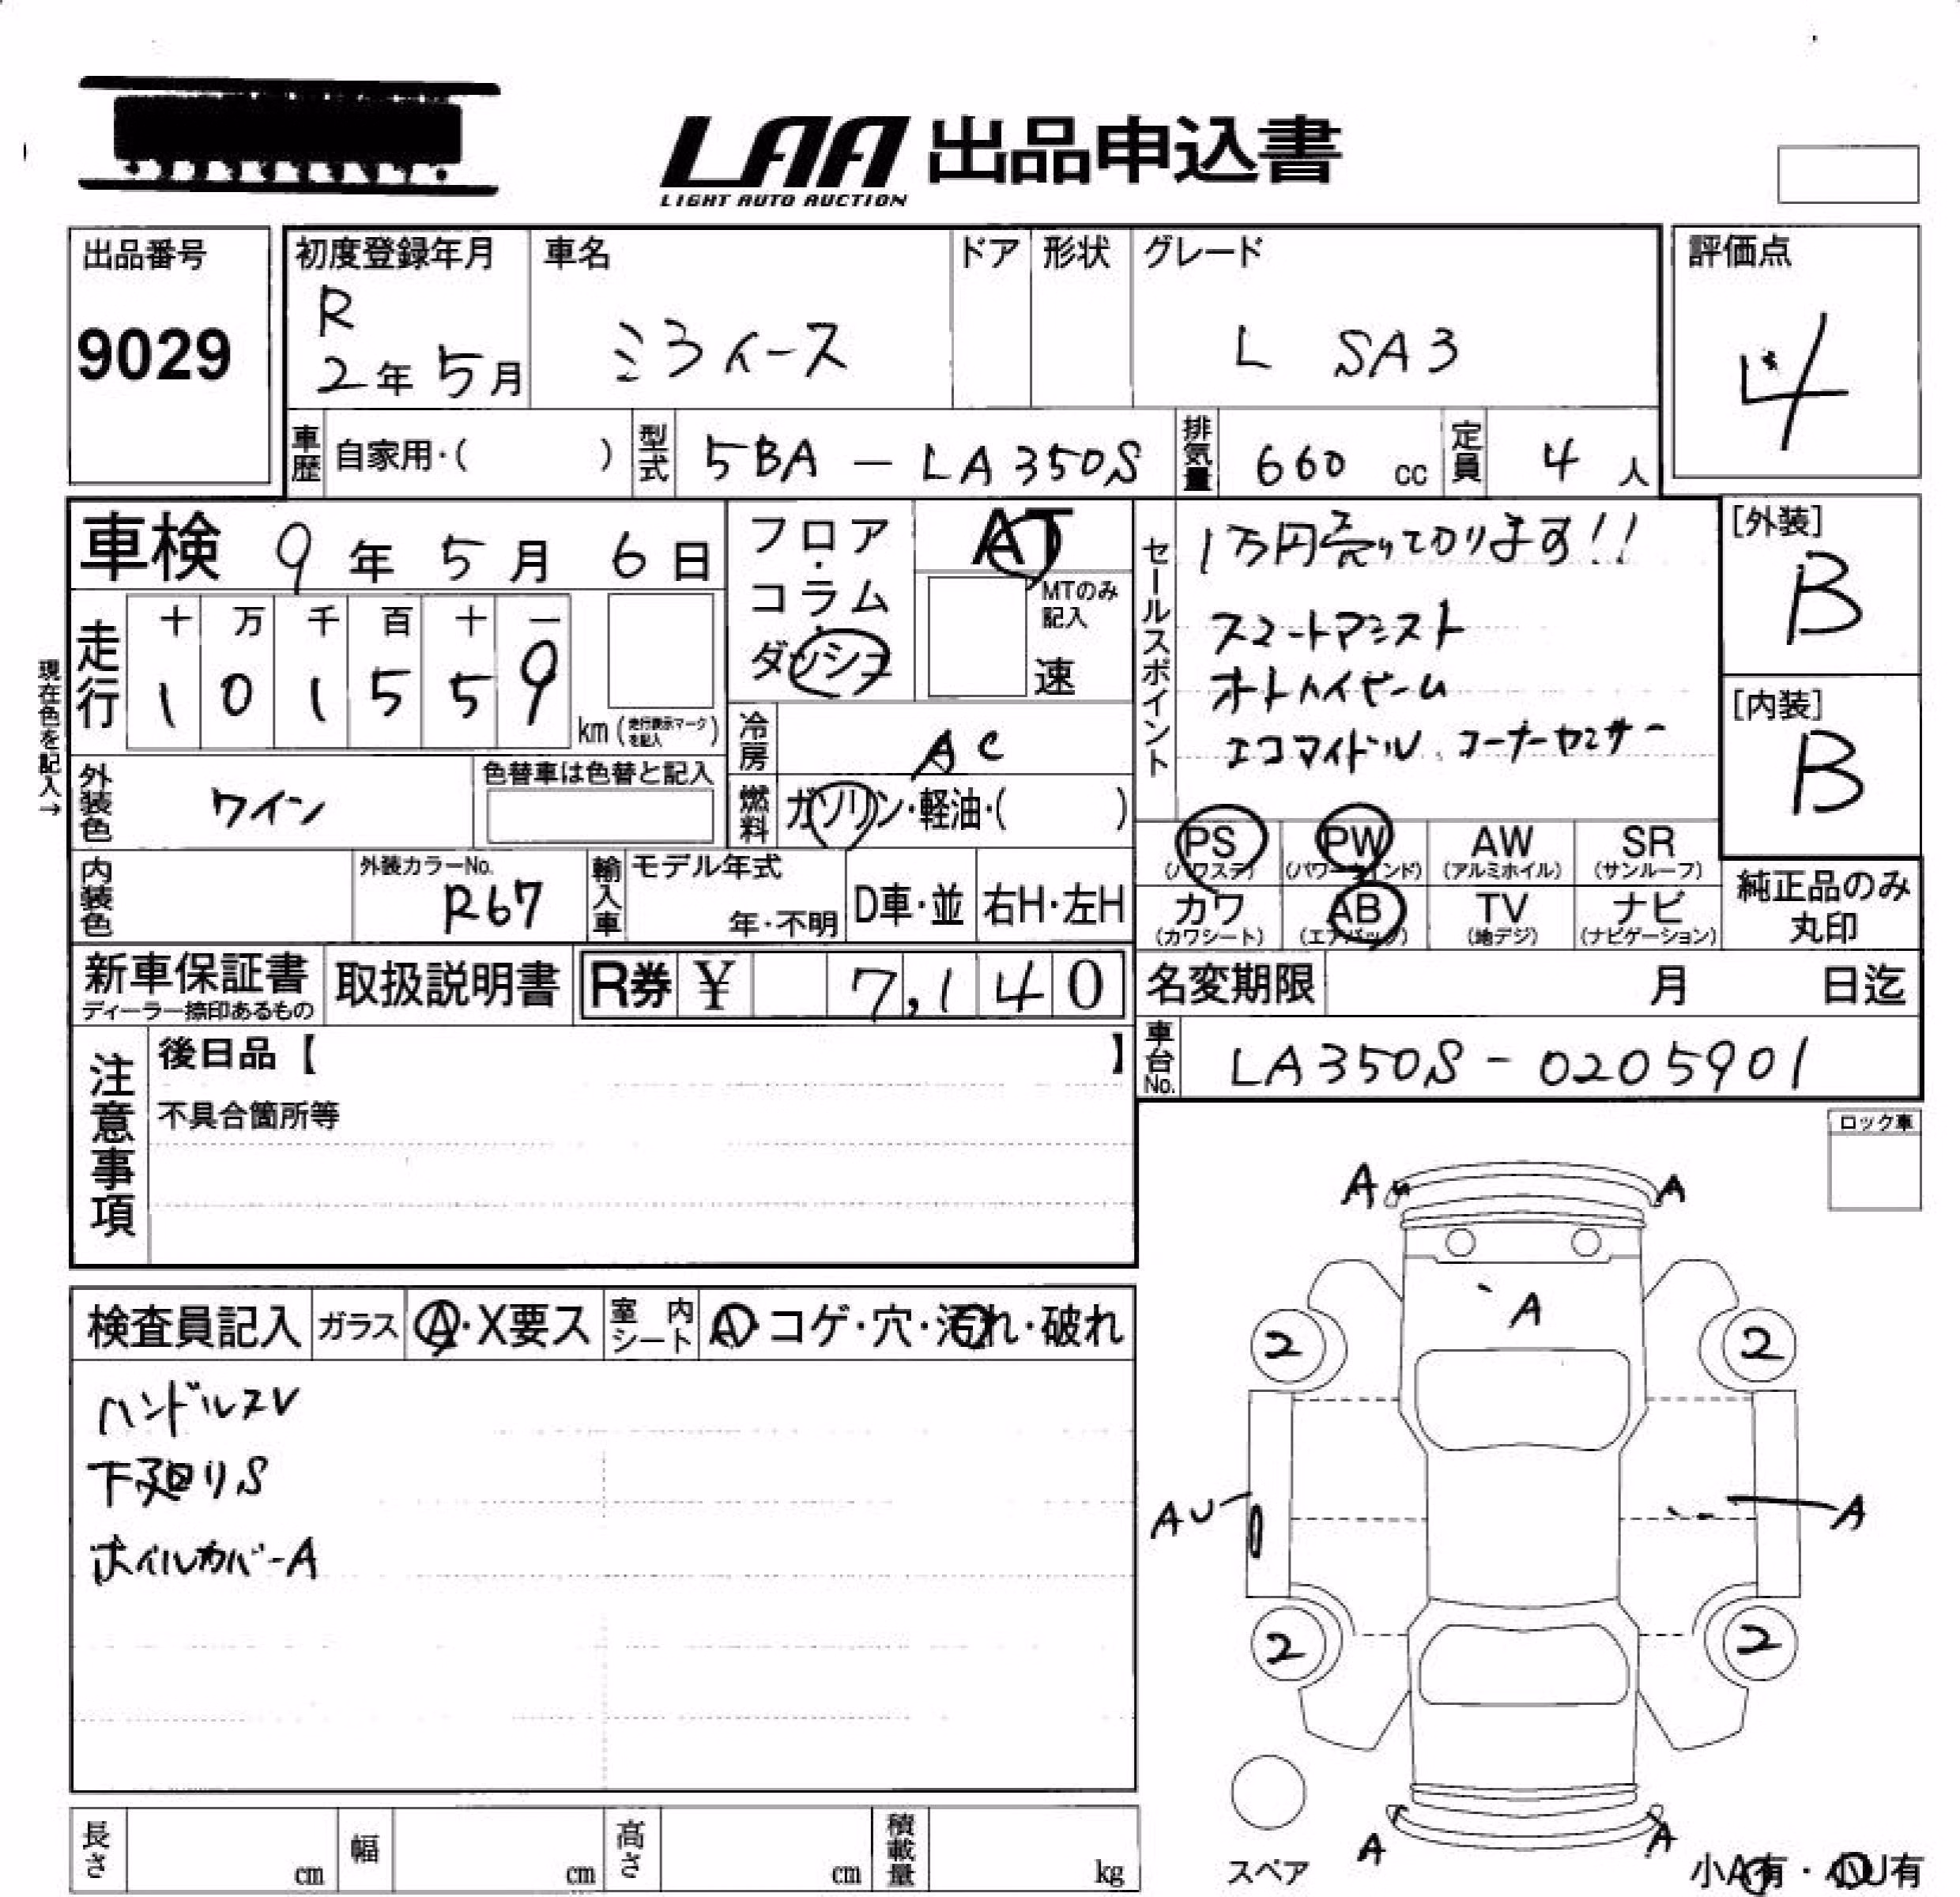 LAA 出品申込書
LIGHT AUTO AUCTION
出品番号
9029
初度登録年月
R
2年5月
車名
ミライース
ドア
形状
グレード
L SA3
評価点
4
車歴
自家用・( )
型式
5BA - LA350S
排気量
660 cc
定員
4 人
車検 9年 5月 6日
フロア・コラム・ダッシュ
AT
MTのみ記入
速
セールスポイント
1万円売り切ります!!
スマートアシスト
オートハイビーム
エコアイドル、コーナーセンサー
[外装]
B
[内装]
B
現在色を記入→
走行
十 万 千 百 十 一
1 0 1 5 5 9
km (走行表示マークを記入)
冷房
AC
外装色
ワイン
色替車は色替と記入
燃料
ガソリン・軽油・( )
PS
(パワステ)
PW
(パワーウインド)
AW
(アルミホイル)
SR
(サンルーフ)
カワ
(カワシート)
AB
(エアバック)
TV
(地デジ)
ナビ
(ナビゲーション)
純正品のみ
丸印
内装色
外装カラーNo.
R67
輸入車
モデル年式
年・不明
D車・並
右H・左H
新車保証書
ディーラー捺印あるもの
取扱説明書
R券 ¥ 7,140
名変期限
月 日迄
車台No.
LA350S - 0205901
注意事項
後日品【 】
不具合箇所等
ロック車
検査員記入
ガラス
A・X要ス
室内シート
A・コゲ・穴・汚れ・破れ
ハンドルスレ
下廻りS
ホイルカバーA
A
A
A
2
2
AU
A
2
2
A
A
スペア
小A有・小U有
長さ
cm
幅
cm
高さ
cm
積載量
kg